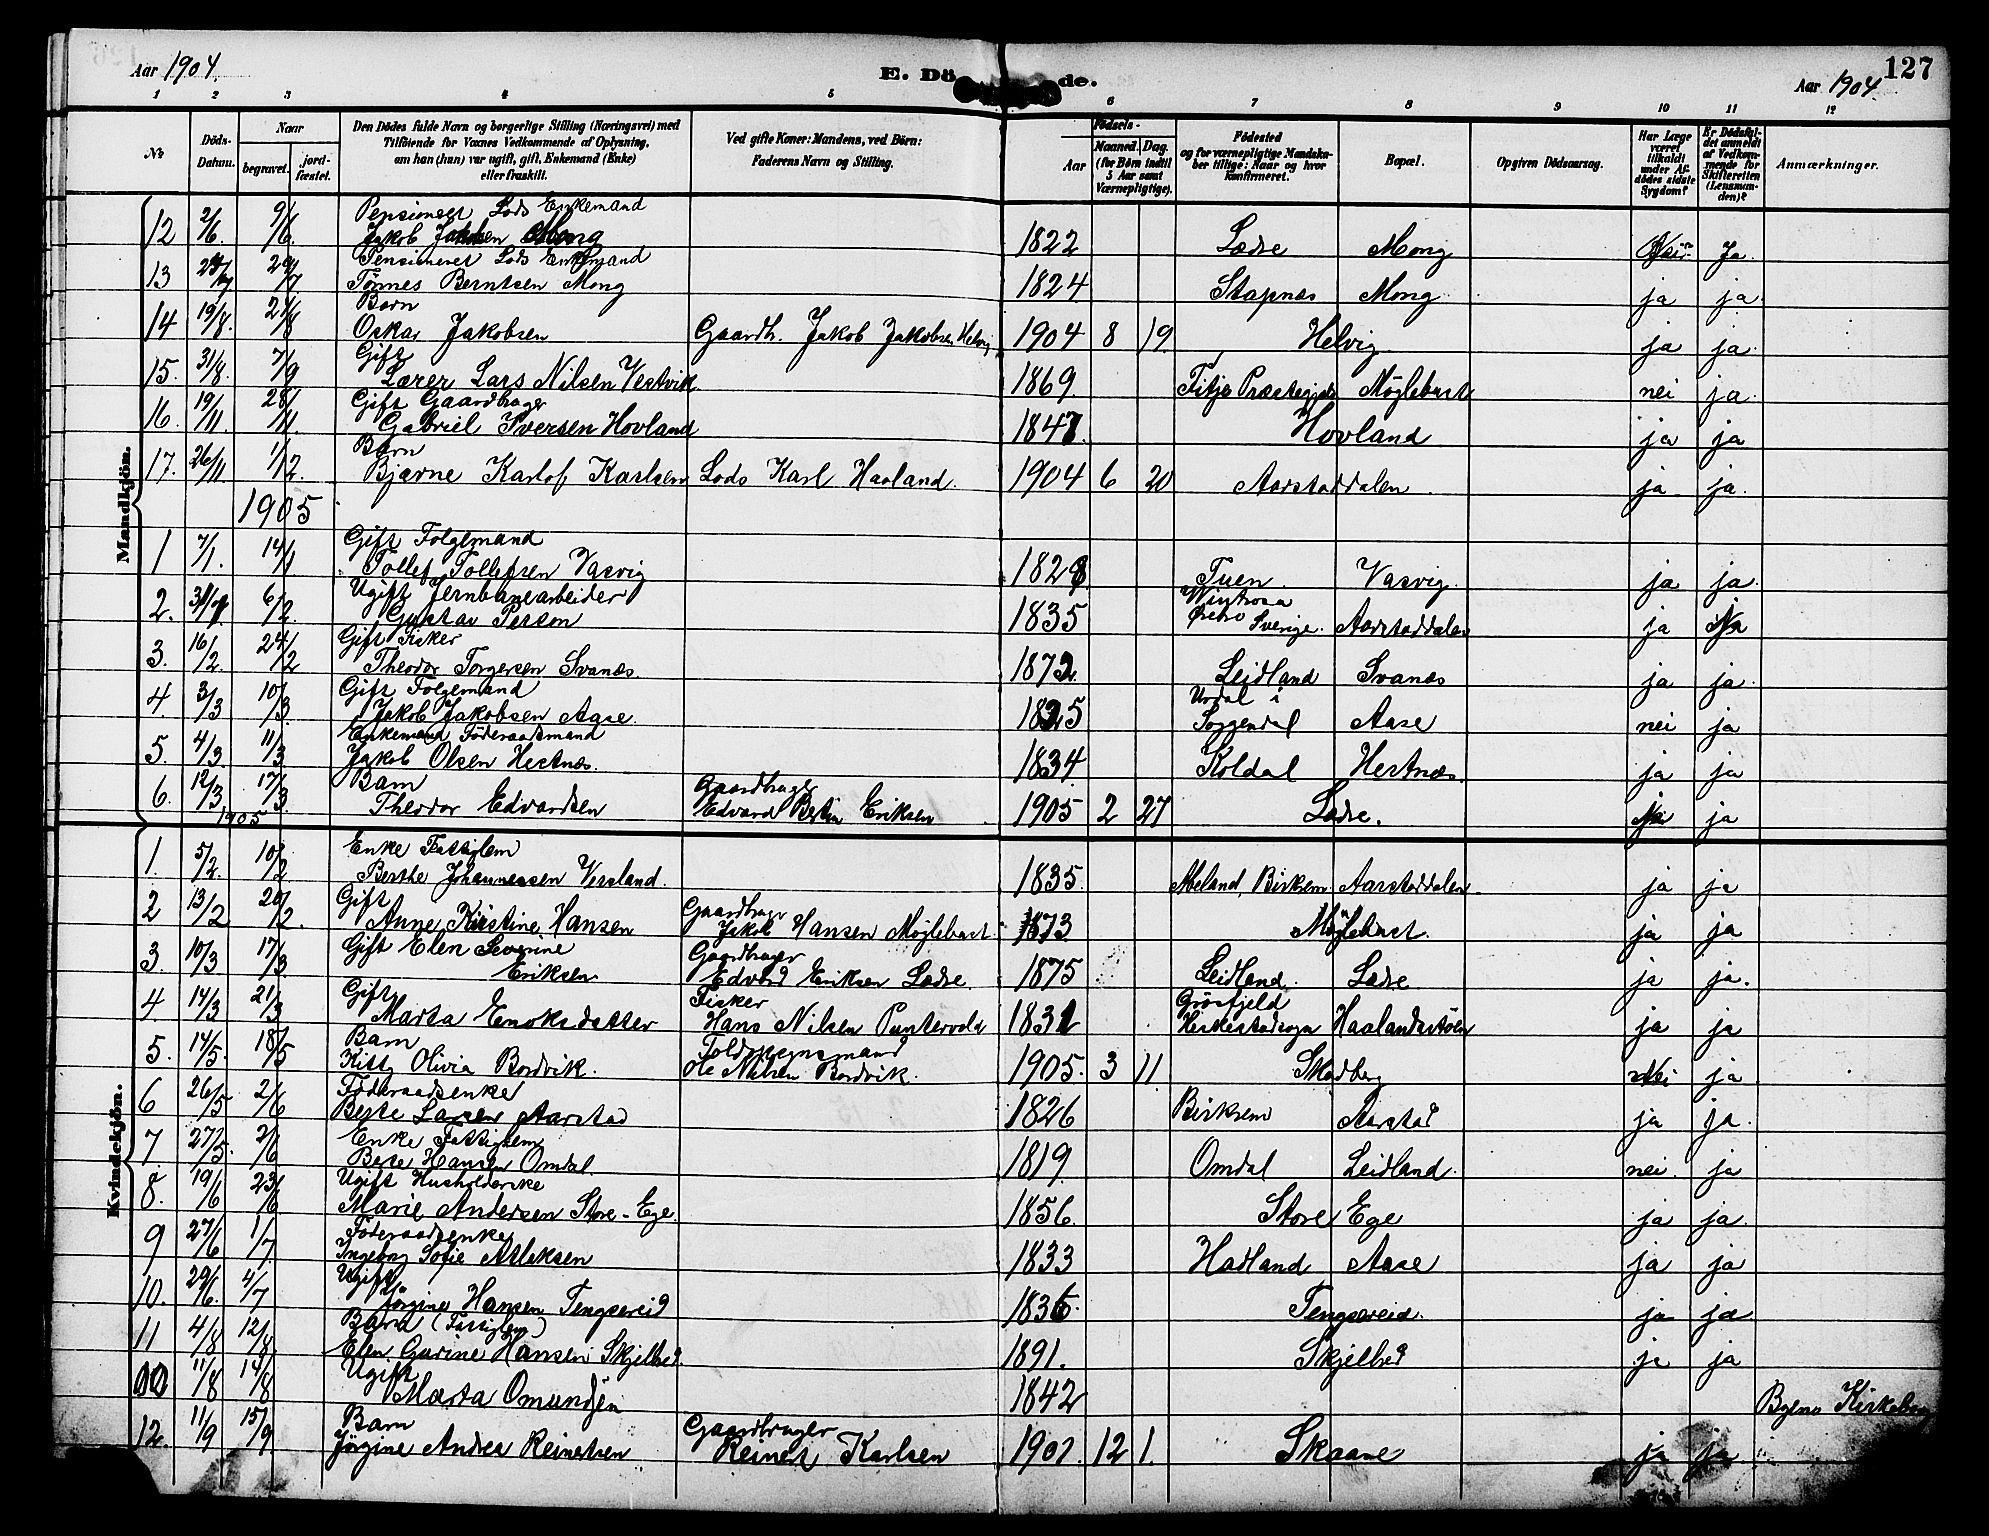 Aar 1904.
E. Dö de.
127
Aar 1904.
1 2 3 4 5 6 7 8 9 10 11 12
No
Döds-Datum.
Naar
begravet.
jord-fæstet.
Den Dödes fulde Navn og borgerlige Stilling (Næringsvei) med Tilföiende for Voxnes Vedkommende af Oplysning, om han (hun) var ugift, gift, Enkemand (Enke) eller fraskilt.
Ved gifte Koner: Mandens, ved Börn: Faderens Navn og Stilling.
Födsels-
Aar
Maaned. Dag.
(for Börn indtil 5 Aar samt Værnepligtige).
Födested og for værnepligtige Mandskaber tillige: Naar og hvor konfirmeret.
Bopæl.
Opgiven Dödsaarsag.
Har Læge været tilkaldt under Afdödes sidste Sygdom?
Er Dödsfaldet anmeldt af Vedkommende for Skifteretten (Lensmanden)?
Anmærkninger.
Mandkjön.
Pensioneret Lods Enkemand
12 2/6. 9/6. Jakob Mong 1822 Lædre Mong Nei Ja.
Pensioneret Lods Enkemand
13 29/7 Tönnes Berntsen Mong 1824 Stapnæs Mong ja ja
Barn
14 19/8. 21/8 Oskar Jakobsen Gaardb. Jakob Jakobsen Helvig 1904 8 19. Helvig ja ja
Gift
15. 31/8. 7/9 Lærer Lars Nilsen Vestvik 1869. Fitje Præstegjeld Möglebust nei ja
Gift Gaardbruger
16. 19/11. 28/11. Gabriel Iversen Hovland 1847. Hovland ja ja
Barn
17. 26/11 1/12. Bjarne Karlof Karlsen Lods Karl Haaland. 1904 6 20 Aarstaddalen. ja ja.
1905
Gift Folgemand
1 7/1. 14/1 Tollef Tollefsen Vasvig 1828 Tuen. Vasvig. ja ja.
Ugift Jernbanearbeider
2. 6/2 Gustav Person 1835 Örebro Sverige. Aarstaddalen ja Ja
Gift Fisker
3. 16/2. 24/2 Theodor Torgersen Svanæs 1872 Leidland Svanæs ja ja
Gift Folgemand Urdal i
4. 3/3 10/3. Jakob Jakobsen Aase. 1825 Soggendal Aase nei ja
Enkemand Föderaadsmand
5. 4/3 11/3 Jakob Olsen Hestnæs. 1834 Koldal Hestnæs. ja ja
Barn Gaardbruger
6. 12/3 17/3 Theodor Edvardsen Edvard Bertin Eriksen 1905 2 27 Lædre. Nei ja
1905
Kvindekjön.
Enke Fattiglem
1. 5/2. 10/2 Berthe Johannessen Versland. 1835. Meland, Birkrem Aarstaddalen ja ja
Gift Gaardbruger
2 13/2 20/2. Anne Kirstine Hansen Jakob Hansen Möglebust. 1873 Möglebust. ja ja
Gift Elen Severine Gaardbruger
3. 10/3 17/3 Eriksen Edvard Eriksen Lædre. 1875 Leidland. Lædre ja ja.
Gift Fisker Grösfjeld
4 14/3 21/3 Marta Enoksdatter Hans Nilsen Puntervold 1831 Heskestadsogn Haalandstöen ja ja
Barn Toldopsynsmand
5. 14/5. 18/5 Kitty Olivia Bordvik. Ole Nilsen Bordvik. 1905. 3 11. Skadberg Nei ja
Föderaadsenke
6 26/5 2/6 Berte Larsen Aarstad 1826 Birkrem Aarstad ja ja.
Enke Fattiglem
7 27/5. 2/6 Berte Hansen Omdal. 1819. Omdal Leidland. nei. ja
Ugift Husholderske
8. 19/6 23/6 Marie Andersen Store-Ege. 1856. Store Ege ja ja.
Föderaadsenke
9 27/6 1/7. Ingeborg Sofie Atleksen 1833 Hadland Aase ja ja
Ugift
10. 29/6. 4/7 Jörgine Hansen Tengsereid 1836. Tengsereid. ja ja
Barn (Fattiglem)
11 4/8 12/8 Elen Gurine Hansen Skjelbred 1891. Skjelbred ja ja
Ugift
11/8 14/8 Marta Omundsen 1842 Byens Kirkebog
Barn Gaardbruger
12. 11/9 15/9 Jörgine Andrea Reinertsen Reinert Karlsen 1901. 12 1. Skaane ja ja